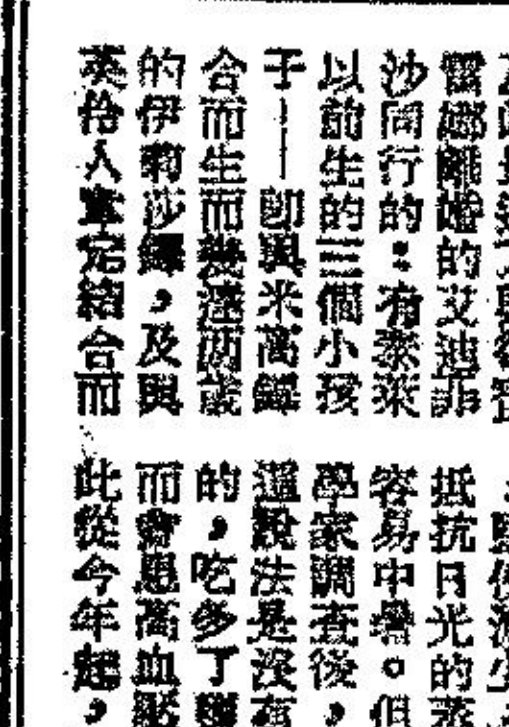 雷娜離婚的艾迪菲
沙同行的：有泰萊
以前生的三個小孩
子——即與米高鐸
合而生而幾達兩歲
的伊莉莎鐸，及與
英伶人 結合而
抵抗日光的
容易中暑。但
學家調查後，
這說法是沒有
的，吃多了
而會患高血壓
此從今年起，